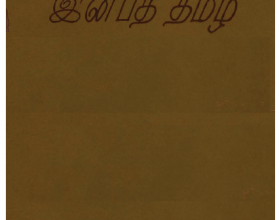 இன்பத் தமிழ்